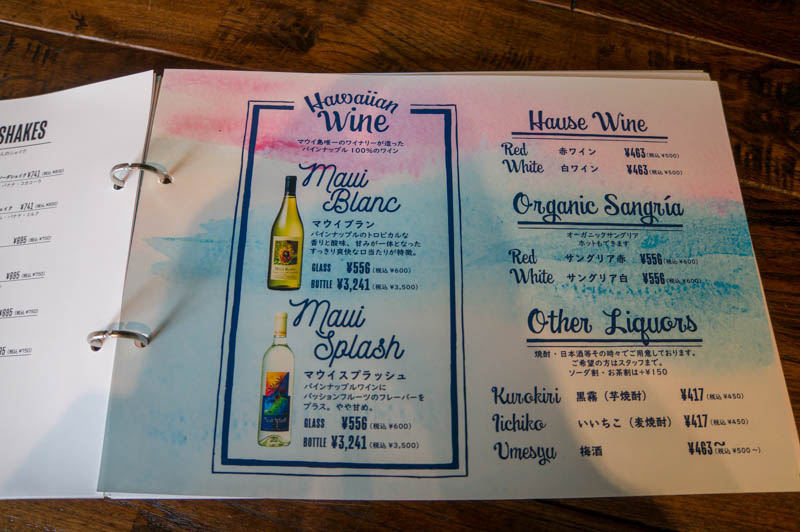 SHAKES
¥741
¥741
¥695 (税込 ¥750)
¥695 (税込 ¥750)
Hawaiian
Wine
マウイ島唯一のワイナリーが造った
パインナップル 100%のワイン
Maui
Blanc
マウイブラン
パインナップルのトロピカルな
香りと酸味。甘みが一体となった
すっきり爽快な口当たりが特徴。
GLASS ¥556 (税込 ¥600)
BOTTLE ¥3,241 (税込 ¥3,500)
Maui
Splash
マウイスプラッシュ
パインナップルワインに
パッションフルーツのフレーバーを
プラス。やや甘め。
GLASS ¥556 (税込 ¥600)
BOTTLE ¥3,241 (税込 ¥3,500)
Hause Wine
Red 赤ワイン ¥463 (税込 ¥500)
White 白ワイン ¥463 (税込 ¥500)
Organic Sangría
オーガニックサングリア
ホットもできます
Red サングリア赤 ¥556 (税込 ¥600)
White サングリア白 ¥556 (税込 ¥600)
Other Liquors
焼酎・日本酒等その時々でご用意しております。
ご希望の方はスタッフまで。
ソーダ割・お茶割は+¥150
Kurokiri 黒霧（芋焼酎） ¥417 (税込 ¥450)
Iichiko いいちこ（麦焼酎） ¥417 (税込 ¥450)
Umesyu 梅酒 ¥463〜 (税込 ¥500〜)